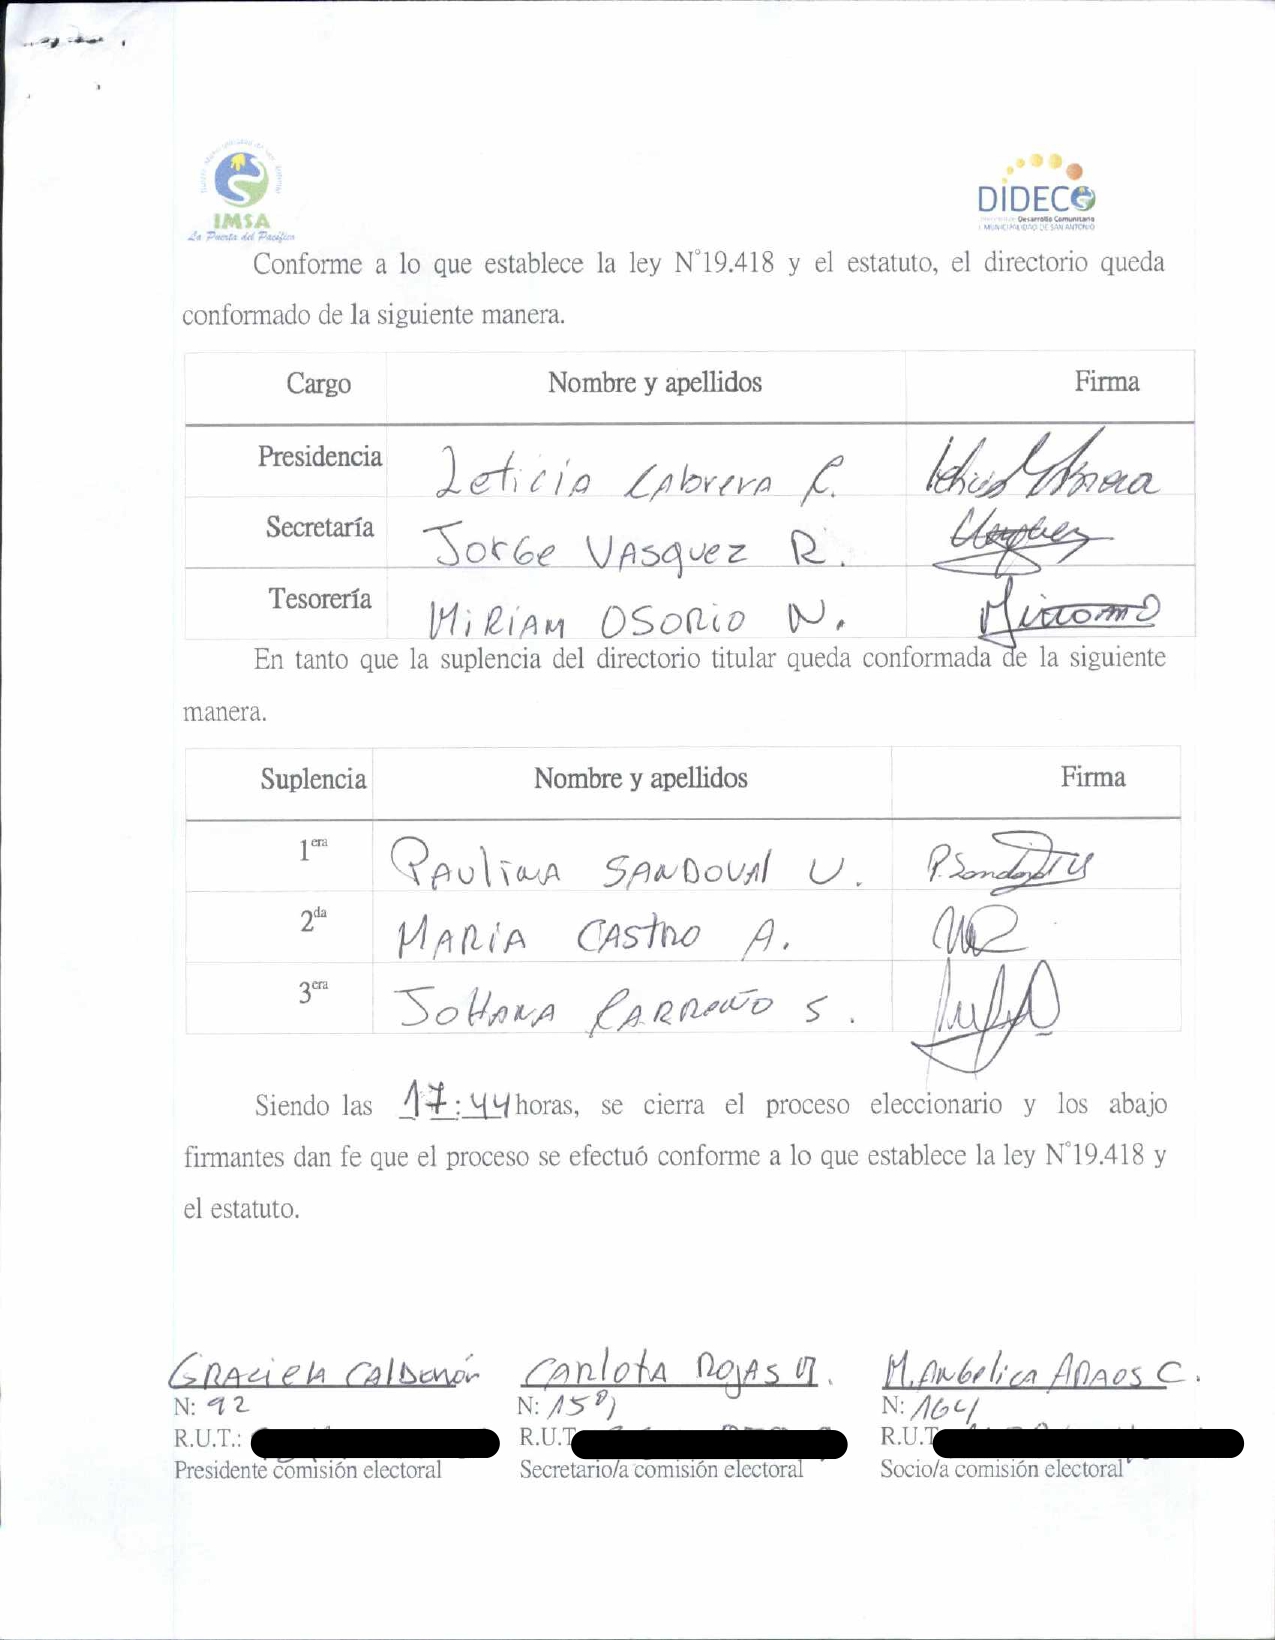 IMSA
La Puerta del Pacífico
DIDECO
Desarrollo Comunitario
I. MUNICIPALIDAD DE SAN ANTONIO
Conforme a lo que establece la ley N°19.418 y el estatuto, el directorio queda
conformado de la siguiente manera.
Cargo Nombre y apellidos Firma
Presidencia Leticia Cabrera C.
Secretaría Jorge Vasquez R.
Tesorería Miriam Osorio N.
En tanto que la suplencia del directorio titular queda conformada de la siguiente
manera.
Suplencia Nombre y apellidos Firma
1era Paulina Sandoval U. P. Sandoval U
2da Maria Castro A.
3era Johana Carreño S.
Siendo las 17:44 horas, se cierra el proceso eleccionario y los abajo
firmantes dan fe que el proceso se efectuó conforme a lo que establece la ley N°19.418 y
el estatuto.
Graciela Calderón Carlota Rojas M. M. Angelica Araos C.
N: 92 N: 158 N: 164
R.U.T.: R.U.T R.U.T
Presidente comisión electoral Secretario/a comisión electoral Socio/a comisión electoral